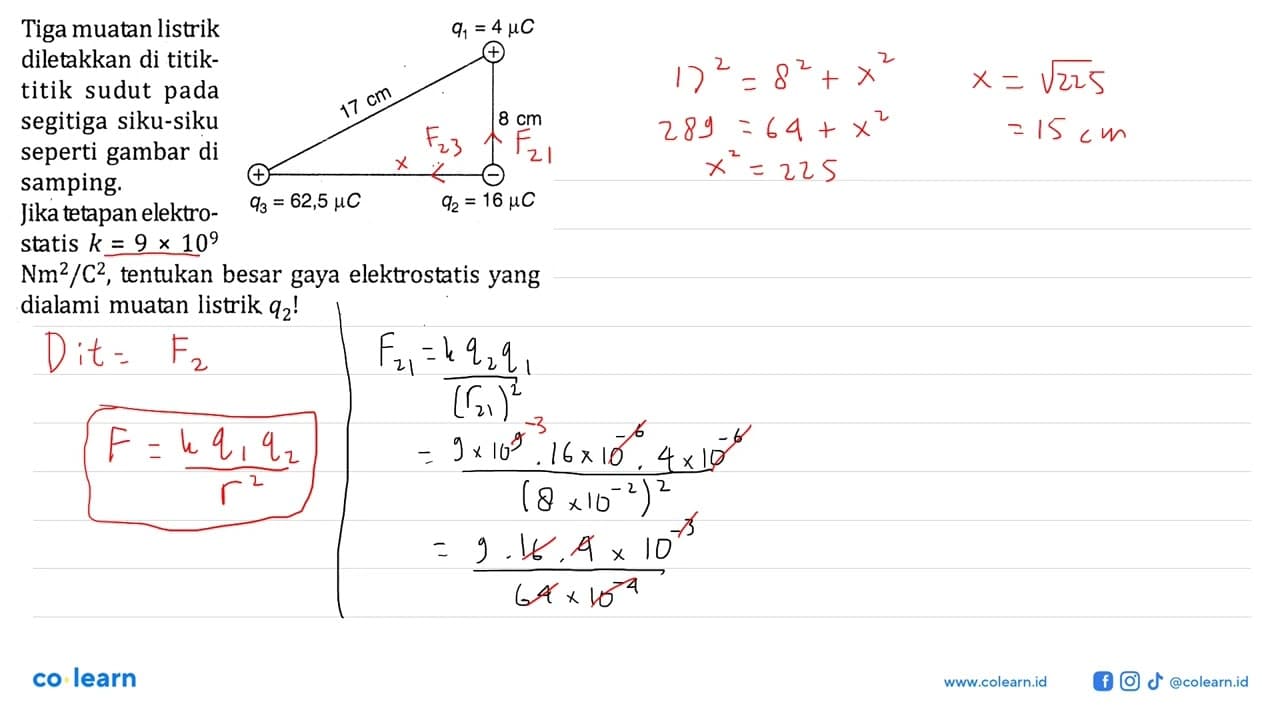 Tiga muatan listrik
diletakkan di titik-
titik sudut pada
segitiga siku-siku
seperti gambar di
samping.
Jika tetapan elektro-
statis k = 9 × 10⁹
Nm²/C², tentukan besar gaya elektrostatis yang
dialami muatan listrik q₂!
q₁ = 4 μC
+
17 cm
8 cm
F₂₃
F₂₁
x
+
−
q₃ = 62,5 μC
q₂ = 16 μC
17² = 8² + x²
289 = 64 + x²
x² = 225
x = √225
= 15 cm
Dit = F₂
F = k q₁ q₂
r²
F₂₁ = k q₂ q₁
(r₂₁)²
= 9 × 10⁹ ⁻³ . 16 × 10⁻⁶ . 4 × 10⁻⁶
(8 × 10⁻²)²
= 9 . 16 . 4 × 10⁻³
64 × 10⁻⁴
co learn
www.colearn.id
@colearn.id